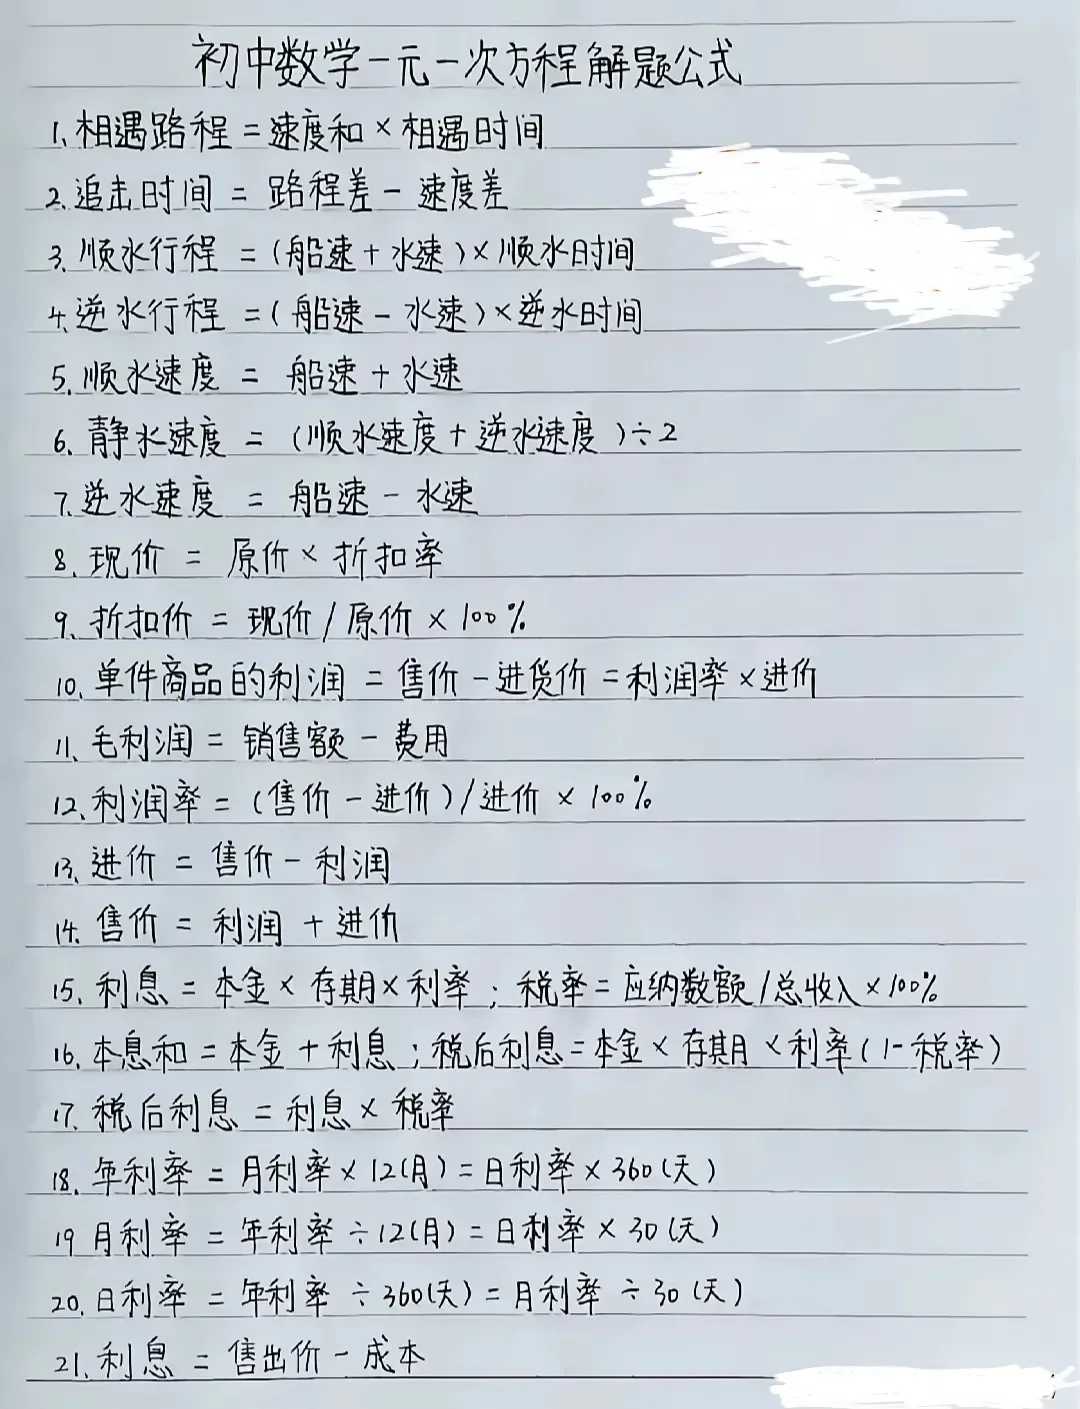 初中数学一元一次方程解题公式
1、相遇路程=速度和×相遇时间
2、追击时间 = 路程差 - 速度差
3、顺水行程 =(船速+水速)×顺水时间
4、逆水行程 =(船速-水速)×逆水时间
5、顺水速度 = 船速+水速
6、静水速度 = (顺水速度+逆水速度)÷2
7、逆水速度 = 船速 - 水速
8、现价 = 原价×折扣率
9、折扣价 = 现价/原价×100%
10、单件商品的利润 = 售价-进货价=利润率×进价
11、毛利润 = 销售额-费用
12、利润率=(售价-进价)/进价×100%
13、进价 = 售价-利润
14、售价 = 利润 + 进价
15、利息 = 本金×存期×利率;税率=应纳数额/总收入×100%
16、本息和 =本金+利息;税后利息=本金×存期×利率(1-税率)
17、税后利息 = 利息×税率
18、年利率 = 月利率×12(月)=日利率×360(天)
19 月利率 = 年利率÷12(月)=日利率×30(天)
20、日利率 = 年利率÷360(天)=月利率÷30(天)
21、利息 = 售出价-成本